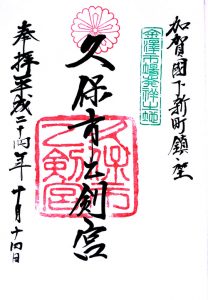 加賀國下新町鎮座
金澤市場発祥之地
久保市乙剣宮
久保市乙剣宮
奉拝 平成二十四年 十月十四日